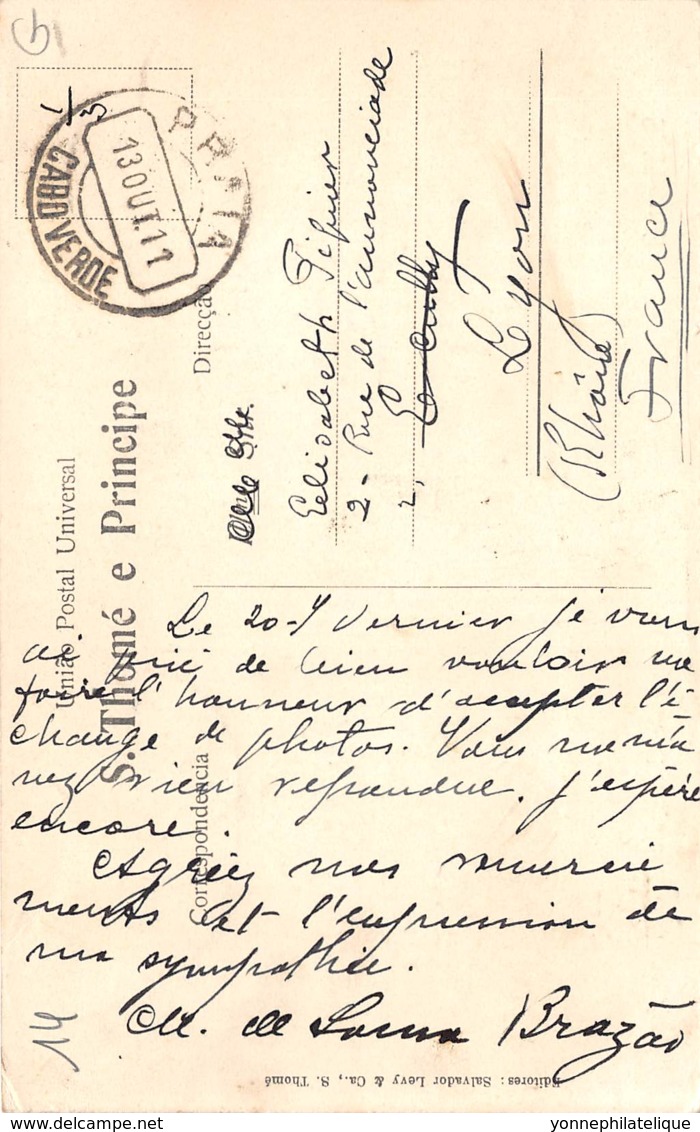 União Postal Universal
S. Thomé e Principe
Correspondencia
Direcção
PRAIA
13 OUT. 11
CABO VERDE
Elisabeth
2 - Rue de l'annonciade
Lyon
(Rhône)
France
Le 20-9 dernier je vous
ai prié de bien vouloir me
faire l'honneur d'accepter l'é-
change de photos. Vous
rien repondue. J'espère
encore.
Agréez mes remercie
ments et l'expression de
ma sympathie.
M. de Brazão
Editores: Salvador Levy & Ca., S. Thomé
14
yonnephilatelique